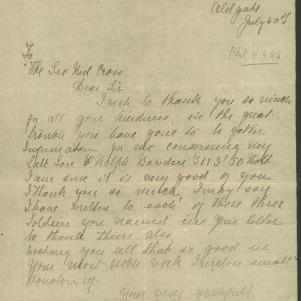 Aldgate
July 30th
To
"The Sec Red Cross
Dear Sir
I wish to thank you so much
for all your kindness, in the great
trouble you have gone to to gather
Information for me concerning my
late Son
I am sure it is very good of you
I thank you so much, I may say
I have written to each of those three
Soldiers you named in your letter
to thank them also,
Wishing you all that is good in
Your most noble work I enclose small
donation
Yours very gratefully